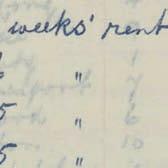 weeks' rent
"
5 "
5 "